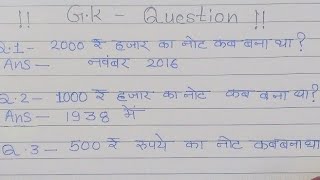 !! G.K - Question !!
Q.1 - 2000 ₹ हजार का नोट कब बना था?
Ans - नवंबर 2016
Q.2 - 1000 ₹ हजार का नोट कब बना था?
Ans - 1938 में
Q.3 - 500 ₹ रुपये का नोट कब बना था